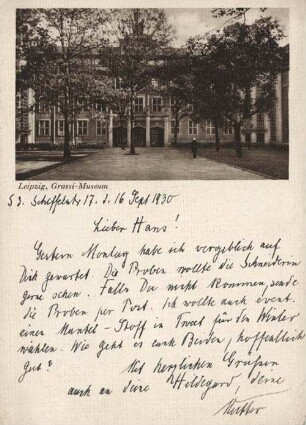 Leipzig, Grassi-Museum
S 3. Scheffelstr 17. d. 16 Sept 1930
Lieber Hans!
Gestern Montag habe ich vergeblich auf
Dich gewartet. Die Proben wollte die Schneiderin
gern sehen. Falls Du nicht kommen, sende
die Proben per Post. Ich wollte auch event.
einen Mantel-Stoff in Tweet für den Winter
wählen. Wie geht es Euch Beiden, hoffentlich
gut? Mit herzlichen Grüssen
auch an deine Hildegard, deine
Mutter